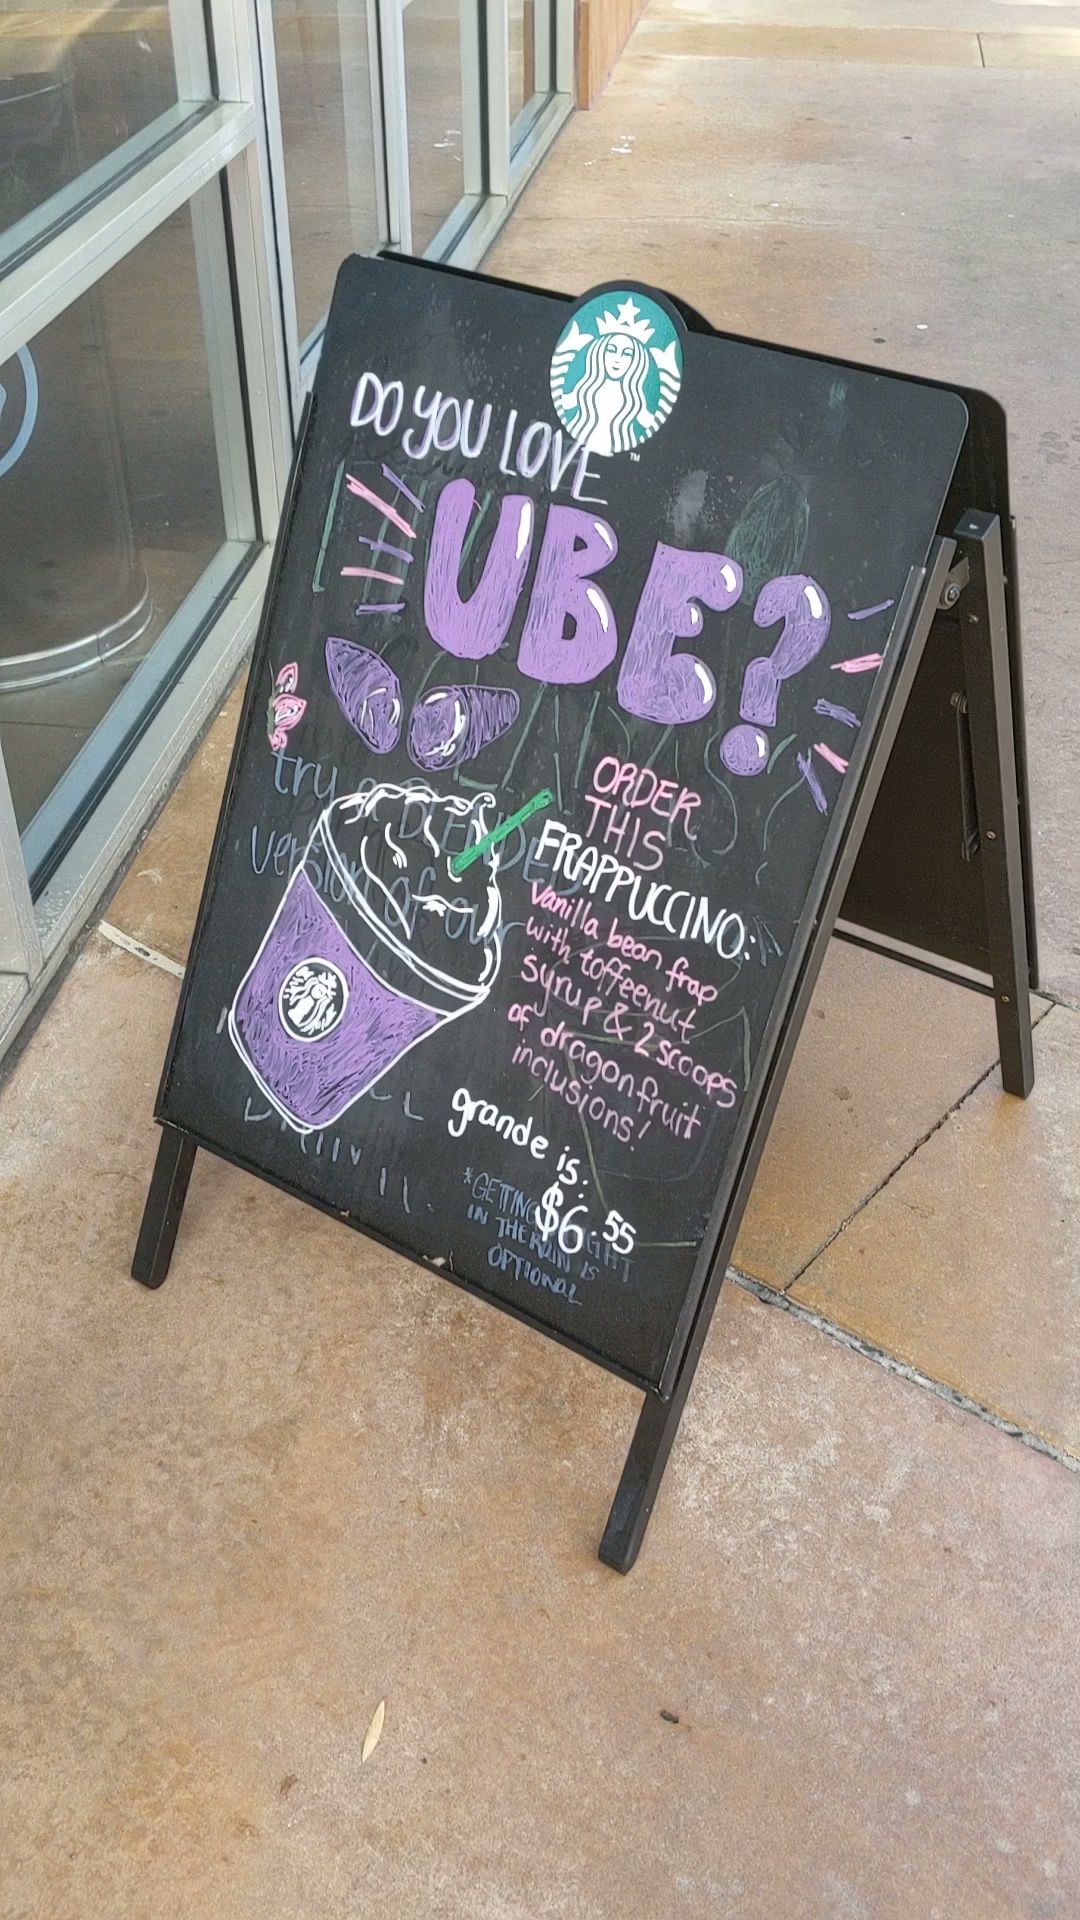 DO YOU LOVE
UBE?
try a BLENDED
version of our
ORDER
THIS
FRAPPUCCINO:
vanilla bean frap
with toffeenut
syrup & 2 scoops
of dragonfruit
inclusions!
grande is:
$6.55
*GETTING CAUGHT
IN THE RAIN IS
OPTIONAL
TM